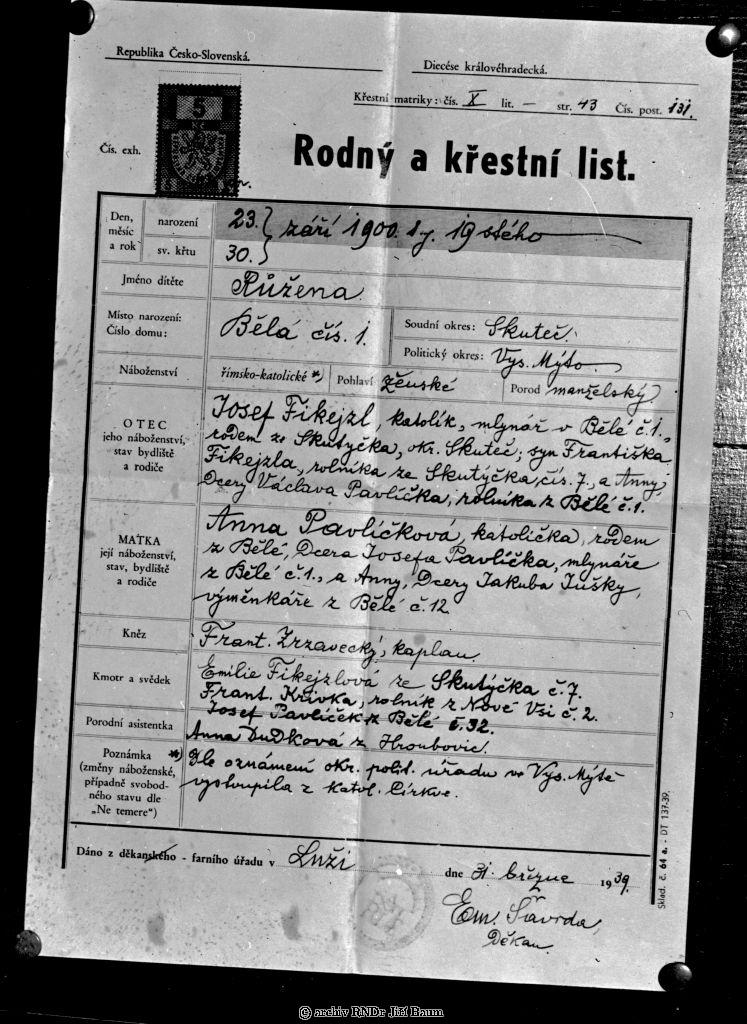 Republika Česko-Slovenská.
Diecése královéhradecká.
Křestní matriky: čís. X lit. – str. 43 Čís. post. 131.
5
Čís. exh.
Rodný a křestní list.
Den, měsíc a rok
narození
23. } září 1900. t.j. 19 stého
sv. křtu
30. }
Jméno dítěte
Růžena
Místo narození:
Číslo domu:
Bělá čís. 1.
Soudní okres: Skuteč.
Politický okres: Vys. Mýto.
Náboženství
římsko-katolické *)
Pohlaví ženské
Porod manželský
OTEC
jeho náboženství,
stav bydliště
a rodiče
Josef Fikejzl, katolík, mlynář v Bělé č. 1.,
rodem ze Skutýčka, okr. Skuteč, syn Františka
Fikejzla, rolníka ze Skutýčka, čís. 7., a Anny,
Dcery Václava Pavlíčka, rolníka z Bělé č. 1.
MATKA
její náboženství,
stav, bydliště
a rodiče
Anna Pavlíčková, katolička, rodem
z Bělé, Dcera Josefa Pavlíčka, mlynáře
z Bělé č. 1., a Anny, Dcery Jakuba Jušky,
výměnkáře z Bělé č. 12
Kněz
Frant. Zrzavecký, kaplan.
Kmotr a svědek
Emilie Fikejzlová ze Skutýčka č. 7.
Frant. Křivka, rolník z Nové Vsi č. 2.
Josef Pavlíček z Bělé č. 32.
Porodní asistentka
Anna Dudková z Hroubovic.
Poznámka *)
(změny náboženské,
případně svobod-
ného stavu dle
„Ne temere“)
Dle oznámení okr. polit. úřadu ve Vys. Mýtě
vystoupila z katol. Církve.
Dáno z děkanského - farního úřadu v Luži
dne 31. března 1939.
Em. Šavrda,
Děkan.
Sklad. č. 64 a. - DT 137-39.
© archiv RNDr. Jiří Baum